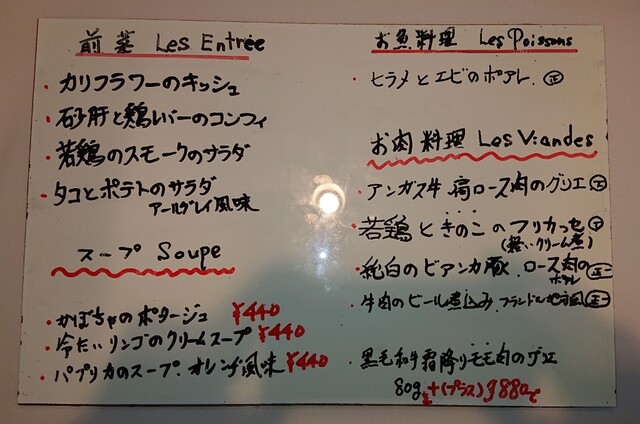 前菜 Les Entrée
・カリフラワーのキッシュ
・砂肝と鶏レバーのコンフィ
・若鶏のスモークのサラダ
・タコとポテトのサラダ
アールグレイ風味
スープ Soupe
・かぼちゃのポタージュ ¥440
・冷たいリンゴのクリームスープ ¥440
・パプリカのスープ.オレンヂ風味 ¥440
お魚料理 Les Poissons
・ヒラメとエビのポアレ 正
お肉料理 Les Viandes
・アンガス牛 肩ロース肉のグリエ
・若鶏ときのこのフリカッセ
(軽いクリーム煮)
・純白のビアンカ豚.ロース肉の
ポアレ
・牛肉のビール煮込み.フランドル地方風
・黒毛和牛霜降りモモ肉のグリエ
80g +(プラス)